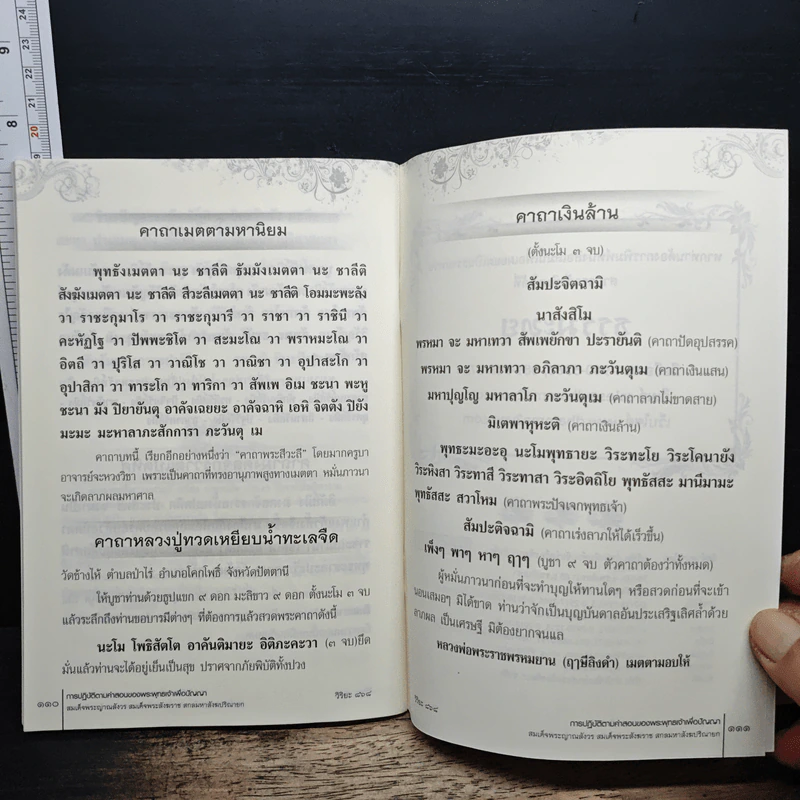 คาถาเมตตามหานิยม
พุทธังเมตตา นะ ชาลีติ ธัมมังเมตตา นะ ชาลีติ
สังมังเมตตา นะ ชาลีติ สีวะลีเมตตา นะ ชาลีติ โอมมะพะลัง
วา ราชะกุมาโร วา ราชะกุมารี วา ราชา วา ราชินี วา
คะหัฏโฐ วา ปัพพะชิโต วา สะมะโณ วา พราหมะโณ วา
อิตถี วา ปุริโส วา วาณิโช วา วาณิชา วา อุปาสะโก วา
อุปาสิกา วา ทาระโก วา ทาริกา วา สัพเพ อิเม ชะนา พะหู
ชะนา มัง ปิยายันตุ อาคัจเฉยยะ อาคัจฉาหิ เอหิ จิตตัง ปิยัง
มะมะ มะหาลาภะสักการา ภะวันตุ เม
คาถาบทนี้ เรียกอีกอย่างหนึ่งว่า “คาถาพระสีวะลี” โดยมากครูบา
อาจารย์จะหวงวิชา เพราะเป็นคาถาที่ทรงอานุภาพสูงทางเมตตา หมั่นภาวนา
จะเกิดลาภผลมหาศาล
คาถาหลวงปู่ทวดเหยียบน้ำทะเลจืด
วัดช้างไห้ ตำบลป่าไร่ อำเภอโคกโพธิ์ จังหวัดปัตตานี
ให้บูชาท่านด้วยธูปแขก ๙ ดอก มะลิขาว ๙ ดอก ตั้งนะโม ๓ จบ
แล้วระลึกถึงท่านขอบารมีต่างๆ ที่ต้องการแล้วสวดพระคาถาดังนี้
นะโม โพธิสัตโต อาคันติมายะ อิติภะคะวา (๓ จบ)ยึด
มั่นแล้วท่านจะได้อยู่เย็นเป็นสุข ปราศจากภัยพิบัติทั้งปวง
๑๑๐
การปฏิบัติตามคำสอนของพระพุทธเจ้าเพื่อปัญญา
สมเด็จพระญาณสังวร สมเด็จพระสังฆราช สกลมหาสังฆปริณายก
วิริยะ ๘๖๘
คาถาเงินล้าน
(ตั้งนะโม ๓ จบ)
สัมปะจิตฉามิ
นาสังสิโม
พรหมา จะ มหาเทวา สัพเพยักขา ปะรายันติ (คาถาปัดอุปสรรค)
พรหมา จะ มหาเทวา อภิลาภา ภะวันตุเม (คาถาเงินแสน)
มหาปุญโญ มหาลาโภ ภะวันตุเม (คาถาลาภไม่ขาดสาย)
มิเตพาหุหะติ (คาถาเงินล้าน)
พุทธะมะอะอุ นะโมพุทธายะ วิระทะโย วิระโคนายัง
วิระหิงสา วิระทาสี วิระทาสา วิระอิตถิโย พุทธัสสะ มานีมามะ
พุทธัสสะ สวาโหม (คาถาพระปัจเจกพุทธเจ้า)
สัมปะติจฉามิ (คาถาเร่งลาภให้ได้เร็วขึ้น)
เพ็งๆ พาๆ หาๆ ฤาๆ (บูชา ๙ จบ ตัวคาถาต้องว่าทั้งหมด)
ผู้หมั่นภาวนาก่อนที่จะทำบุญให้ทานใดๆ หรือสวดก่อนที่จะเข้า
นอนเสมอๆ มิได้ขาด ท่านว่าจักเป็นบุญบันดาลอันประเสริฐเลิศล้ำด้วย
ลาภผล เป็นเศรษฐี มิต้องยากจนแล
หลวงพ่อพระราชพรหมยาน (ฤๅษีลิงดำ) เมตตามอบให้
วิริยะ ๘๖๘
การปฏิบัติตามคำสอนของพระพุทธเจ้าเพื่อปัญญา
สมเด็จพระญาณสังวร สมเด็จพระสังฆราช สกลมหาสังฆปริณายก
๑๑๑
9
8
24
23
22
21
20
19